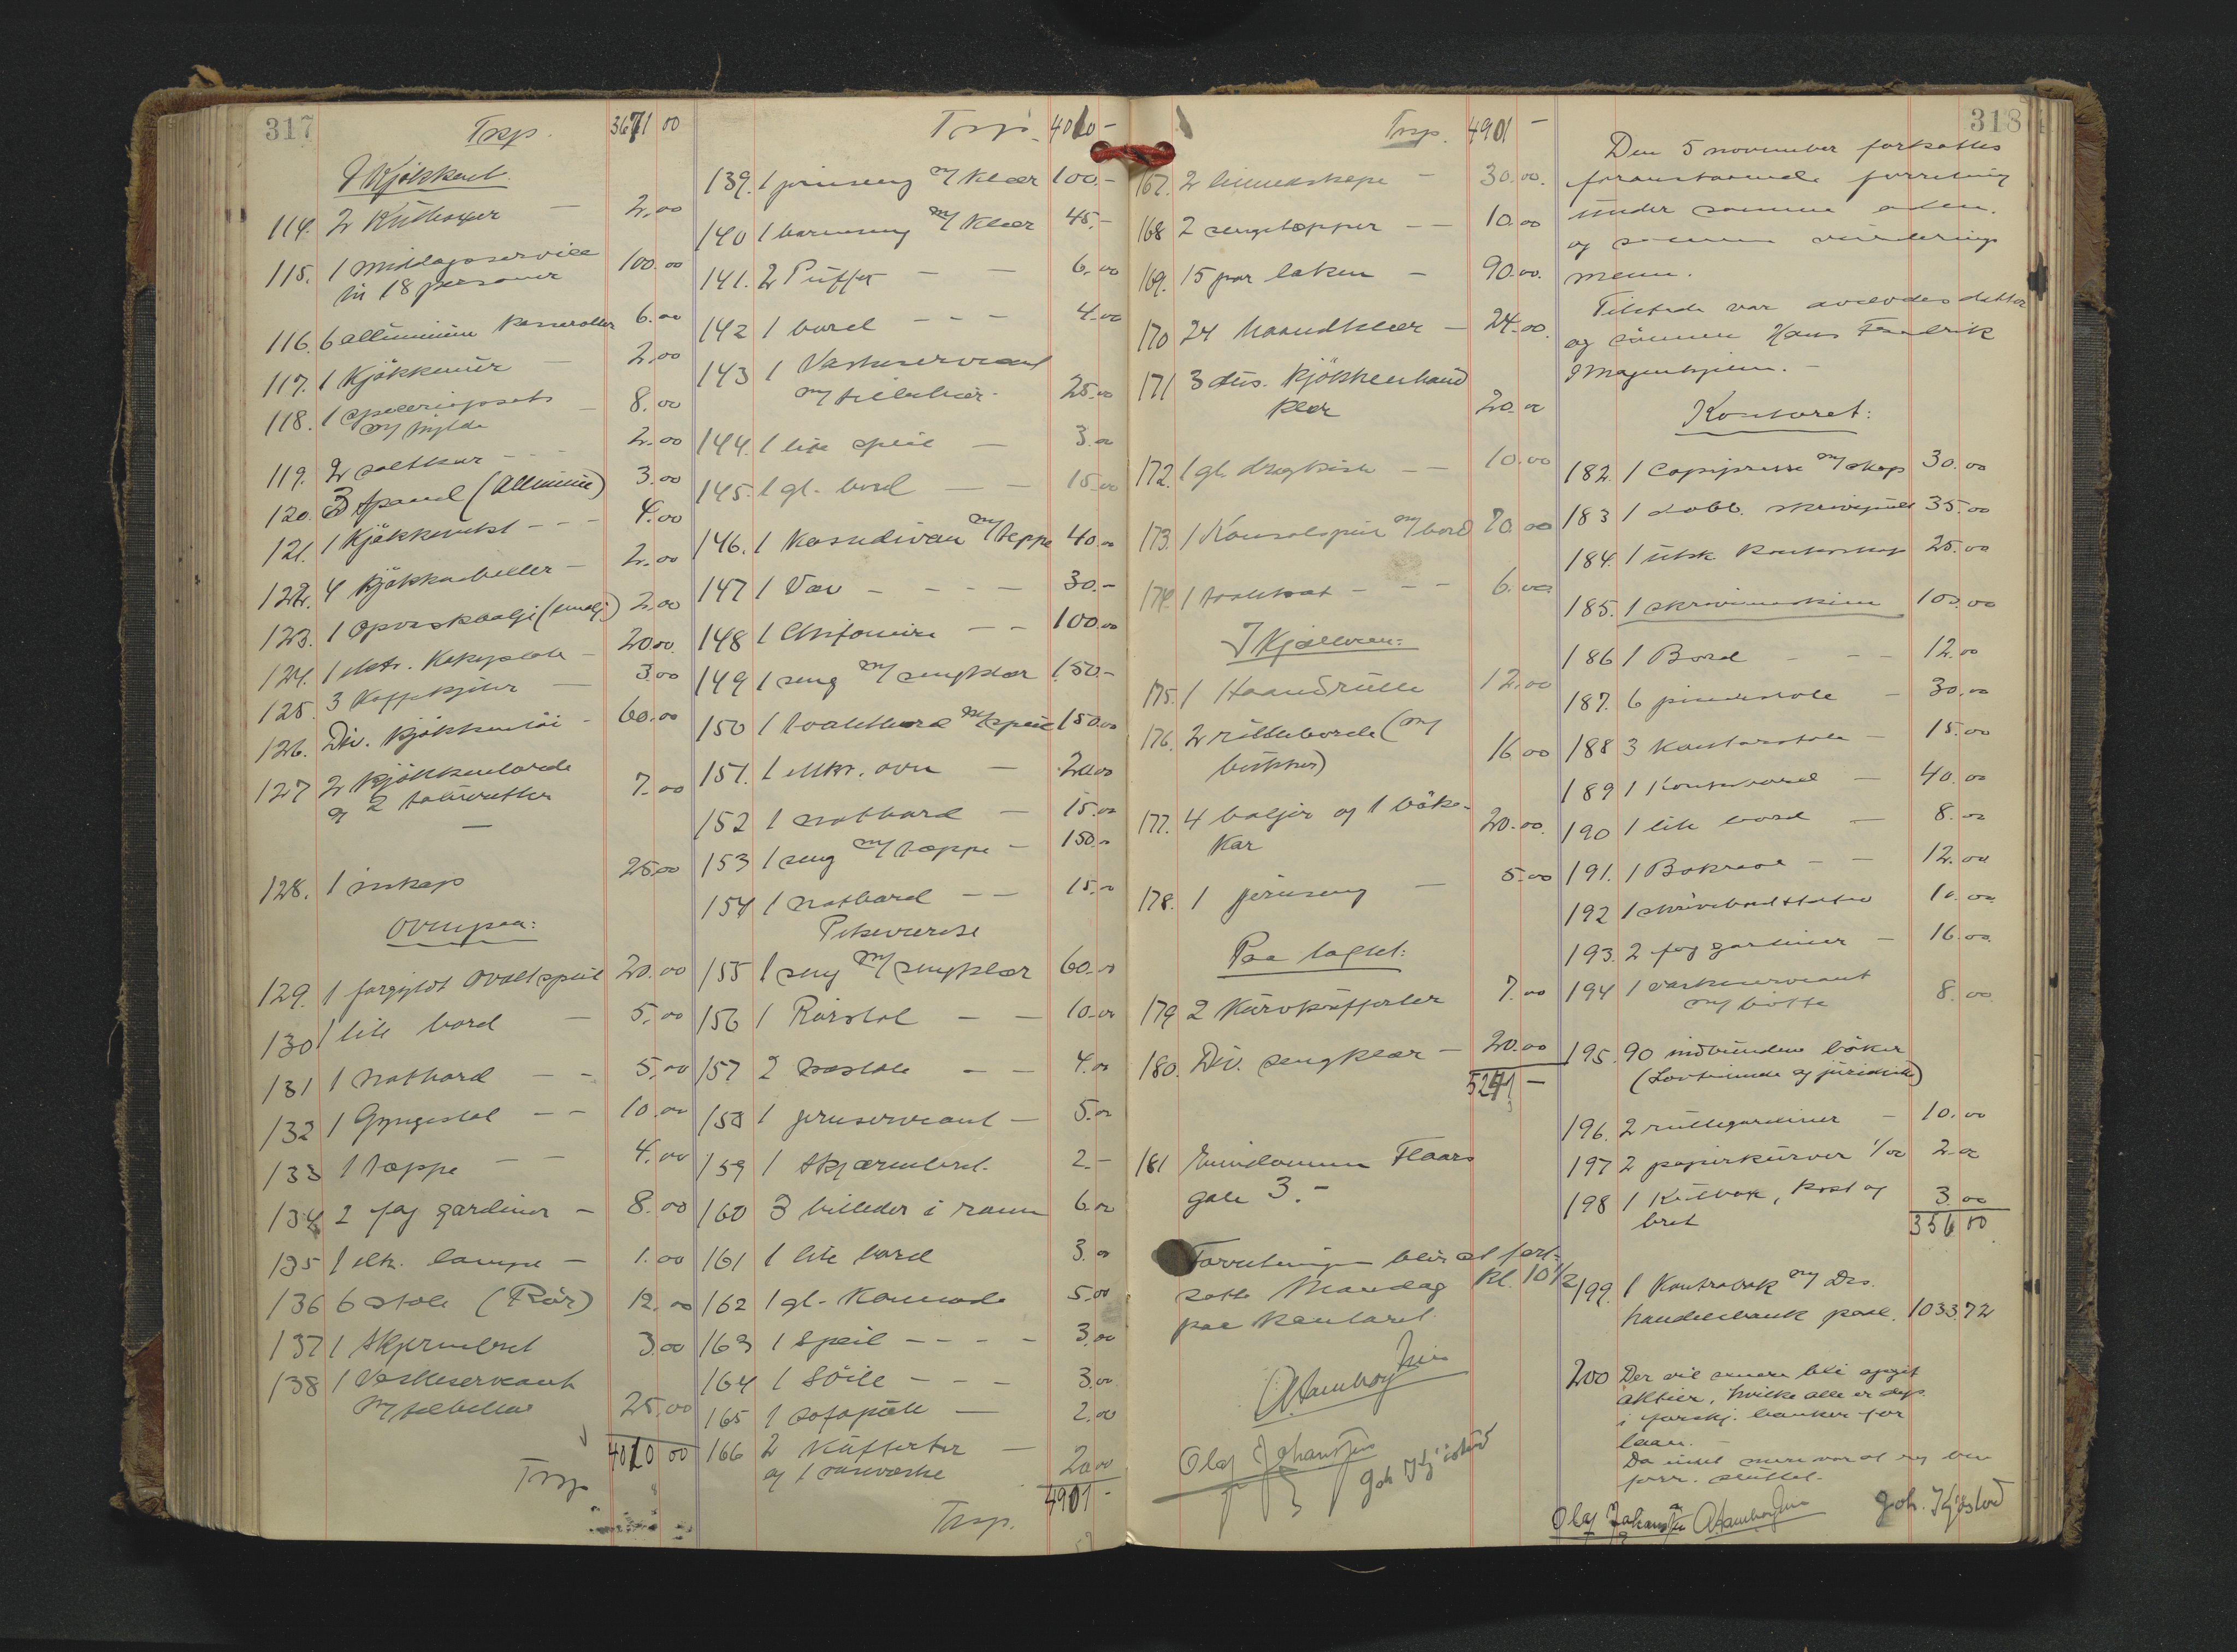 317
Trsp. 3671 00
I Kjökkenet.
114. 2 Kulbokser — 2.00
115. 1 Middagsservice
til 18 personer 100.00
116. 6 alluminium kasseroller 6.00
117. 1 Kjökkenur — 2.00
118. 1
m/ hylde — 8.00
119. 2 saltkar - - 2.00
120. 3 spand (Alluminium) 3.00
121. 1 Kjökkenvekt - - - 4.00
122. 4 Kjökken — 2.00
123. 1 Opvaskbalje (emalj) 2.00
124. 1 elektr. Kokeplate — 20.00
125. 3 Kaffekjeler — 3.00
126. Div. Kjökkentöi - 60.00
127 2 Kjökkenborde
og 2 7.00
128. 1 isskap 25.00
Ovenpaa:
129. 1 forgyldt ovalt speil 20.00
130 1 lite bord — 5.00
131 1 natbord — - 5.00
132 1 Gyngestol - - 10.00
133 1 teppe - - 4.00
134 2 fag gardiner - 8.00
135 1 elk. lampe — 1.00
136 6 stole (Rör) 12.00
137 1 Skjermbret 3.00
138 1 Vaskeservant
m/ tilbehør 25.00
4010 00
Trsp
Trsp. 4010 -
139. 1 jernseng m/ klær 100.-
140 1 barneseng m/ klær 45.-
141. 2 Puffer — — 6.00
142 1 bord - - - 4.00
143 1 Vaskeservant
m/ tilbehør. 25.00
144. 1 lite speil — 3.00
145. 1 gl. bord — — 15.00
146. 1 kassedivan m/ teppe 40.00
147 1 Vev - - - - 30.-
148 1 Chifoniere — - 100.00
149 1 seng m/ sengklær 150.-
150 1 toaletbord m/ speil 150.00
151. 1 elktr. ovn — 20.00
152 1 natbord — 15.00
153 1 seng m/ teppe - 150.00
154 1 natbord — - 15.00
Pikeværelse
155 1 seng m/ sengklær 60.00
156 1 Rørstol — — 10.00
157 2 — - 4.00
158 1 jernservant — 5.00
159 1 Skjærmbret. 2.-
160 3 billeder i ramme 6.00
161 1 lite bord 3.00
162 1 gl. Kommode 5.00
163 1 Speil - - - - 3.00
164 1 Söile - - - 3.00
165 1 sofapute — 2.00
166 2 Kufferter —
og 1 20.00
4901 -
Trsp.
318
Trsp. 4901 —
167. 2 linnedskape — 30.00.
168 2 sengetepper - - 10.00
169. 15 par laken — 90.00.
170 24 haandklær — 24.00.
171 3 dus. Kjökkenhand
klær 20.00
172. 1 gl. dragkiste - - 10.00
173. 1 Konsolspeil m/ bord 70.00
174. 1 - - - 6.00
I Kjælderen:
175. 1 Haandrulle 12.00
176. 2 rulleborde (m/
bukker) 16.00
177. 4 baljer og 1 böke-
kar 20.00.
178. 1 jernseng — 5.00
Paa loftet:
179 2 Kurvkufferter 7.00
180. Div. sengklær — 20.00
5241 —
181 Eiendommen Flaars
gate 3.-
Forretningen blir at fort-
sette Mandag kl. 10 1/2
paa kontoret.
Olaf Johansen Joh. Kjölstad
Den 5 november fortsattes
foranstaaende forretning
under samme adm.
og samme vurderings
menn.
Tilstede var avdødes datter
og sönnen Hans Fredrik
Kontoret:
182. 1 Copipresse m/ skap 30.00
183 1 dobb. skrivepult 35.00
184. 1 25.00
185. 1 skrivemaskine 100.00
186 1 Bord - - - 12.00
187. 6 pinnestole — 30.00
188 3 kontorstole — 15.00
189 1 Kontorbord — 40.00
190 1 lite bord — 8.00
191. 1 Bokreol - - 12.00
192 1 10.00
193. 2 fag gardiner — 16.00
194 1 vaskeservant
m/ bötte 8.00
195. 90 indbundne böker
(Lovtidende og juridiske)
196. 2 rullegardiner — 10.00
197 2 papirkurver 1/00 2.00
198 1 Kulboks, kost og
bret 3 00
356 00
199. 1 Kontrabok m/ Drs.
handelsbank paal. 1033.72
200 Der vil senere bli opgit
aktier, hvilke alle er dep.
i forskj. banker for
laan.-
Da intet mere var at reg. blev
forr. sluttet.-
Olaf Johansen Joh. Kjölstad